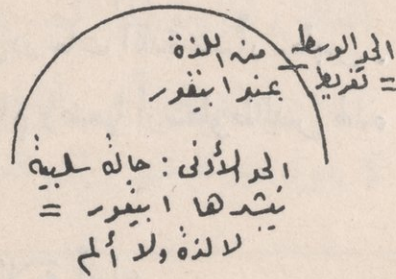 الحد الوسط
= تفريط
من اللذة
عند ابيقور
الحد الأدنى : حالة سلبية
ينشدها ابيقور =
لا لذة ولا ألم